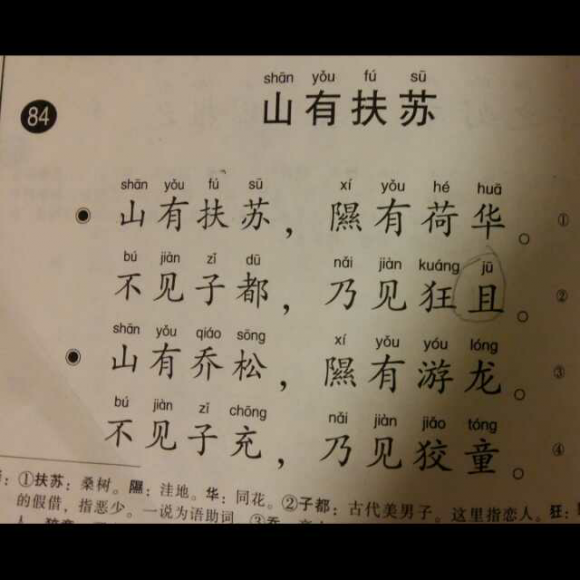 shān yǒu fú sū
84 山有扶苏
shān yǒu fú sū xí yǒu hé huā
山有扶苏，隰有荷华。①
bú jiàn zǐ dū nǎi jiàn kuáng jū
不见子都，乃见狂且。②
shān yǒu qiáo sōng xí yǒu yóu lóng
山有乔松，隰有游龙。③
bú jiàn zǐ chōng nǎi jiàn jiǎo tóng
不见子充，乃见狡童。④
：①扶苏：桑树。隰：洼地。华：同花。②子都：古代美男子。这里指恋人。狂：
的假借，指恶少。一说为语助词